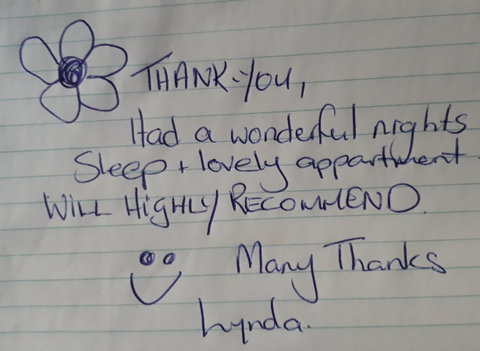 THANK-YOU,
Had a wonderful nights
Sleep + lovely appartment.
WILL HIGHLY RECOMMEND.
Many Thanks
Lynda.